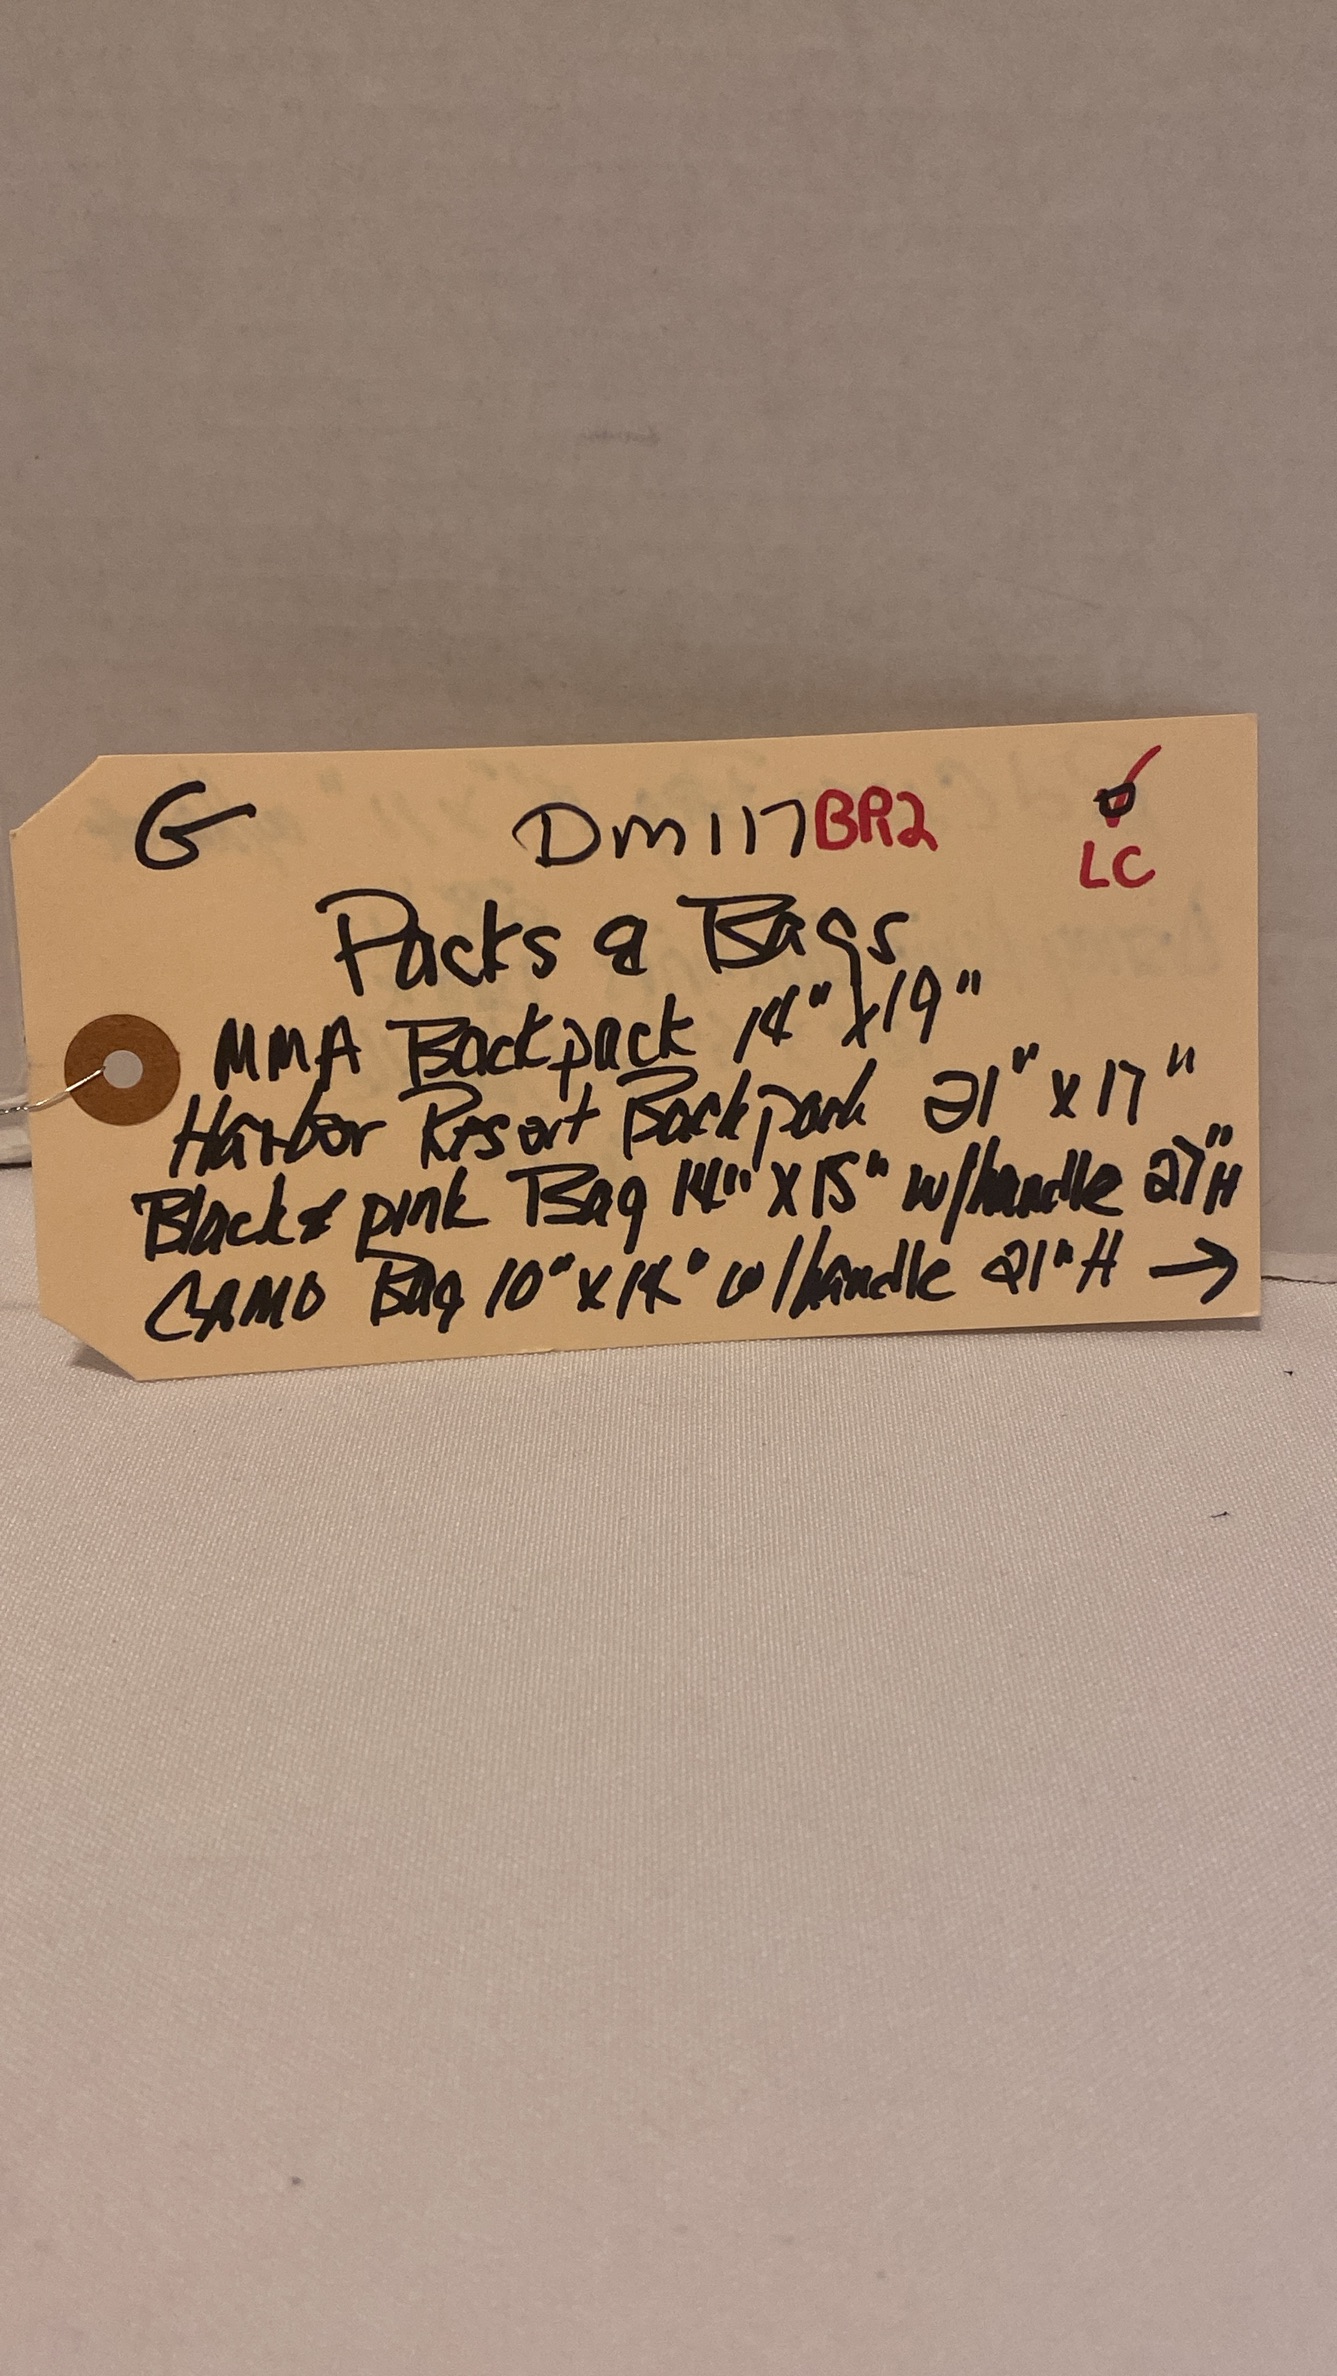 G DM117BR2 ✓
LC
Packs & Bags
MMA Backpack 14" x 19"
Harbor Resort Backpack 21" x 17"
Black & pink Bag 14" x 15" w/handle 27"H
CAMO Bag 10" x 14" w/handle 21"H →